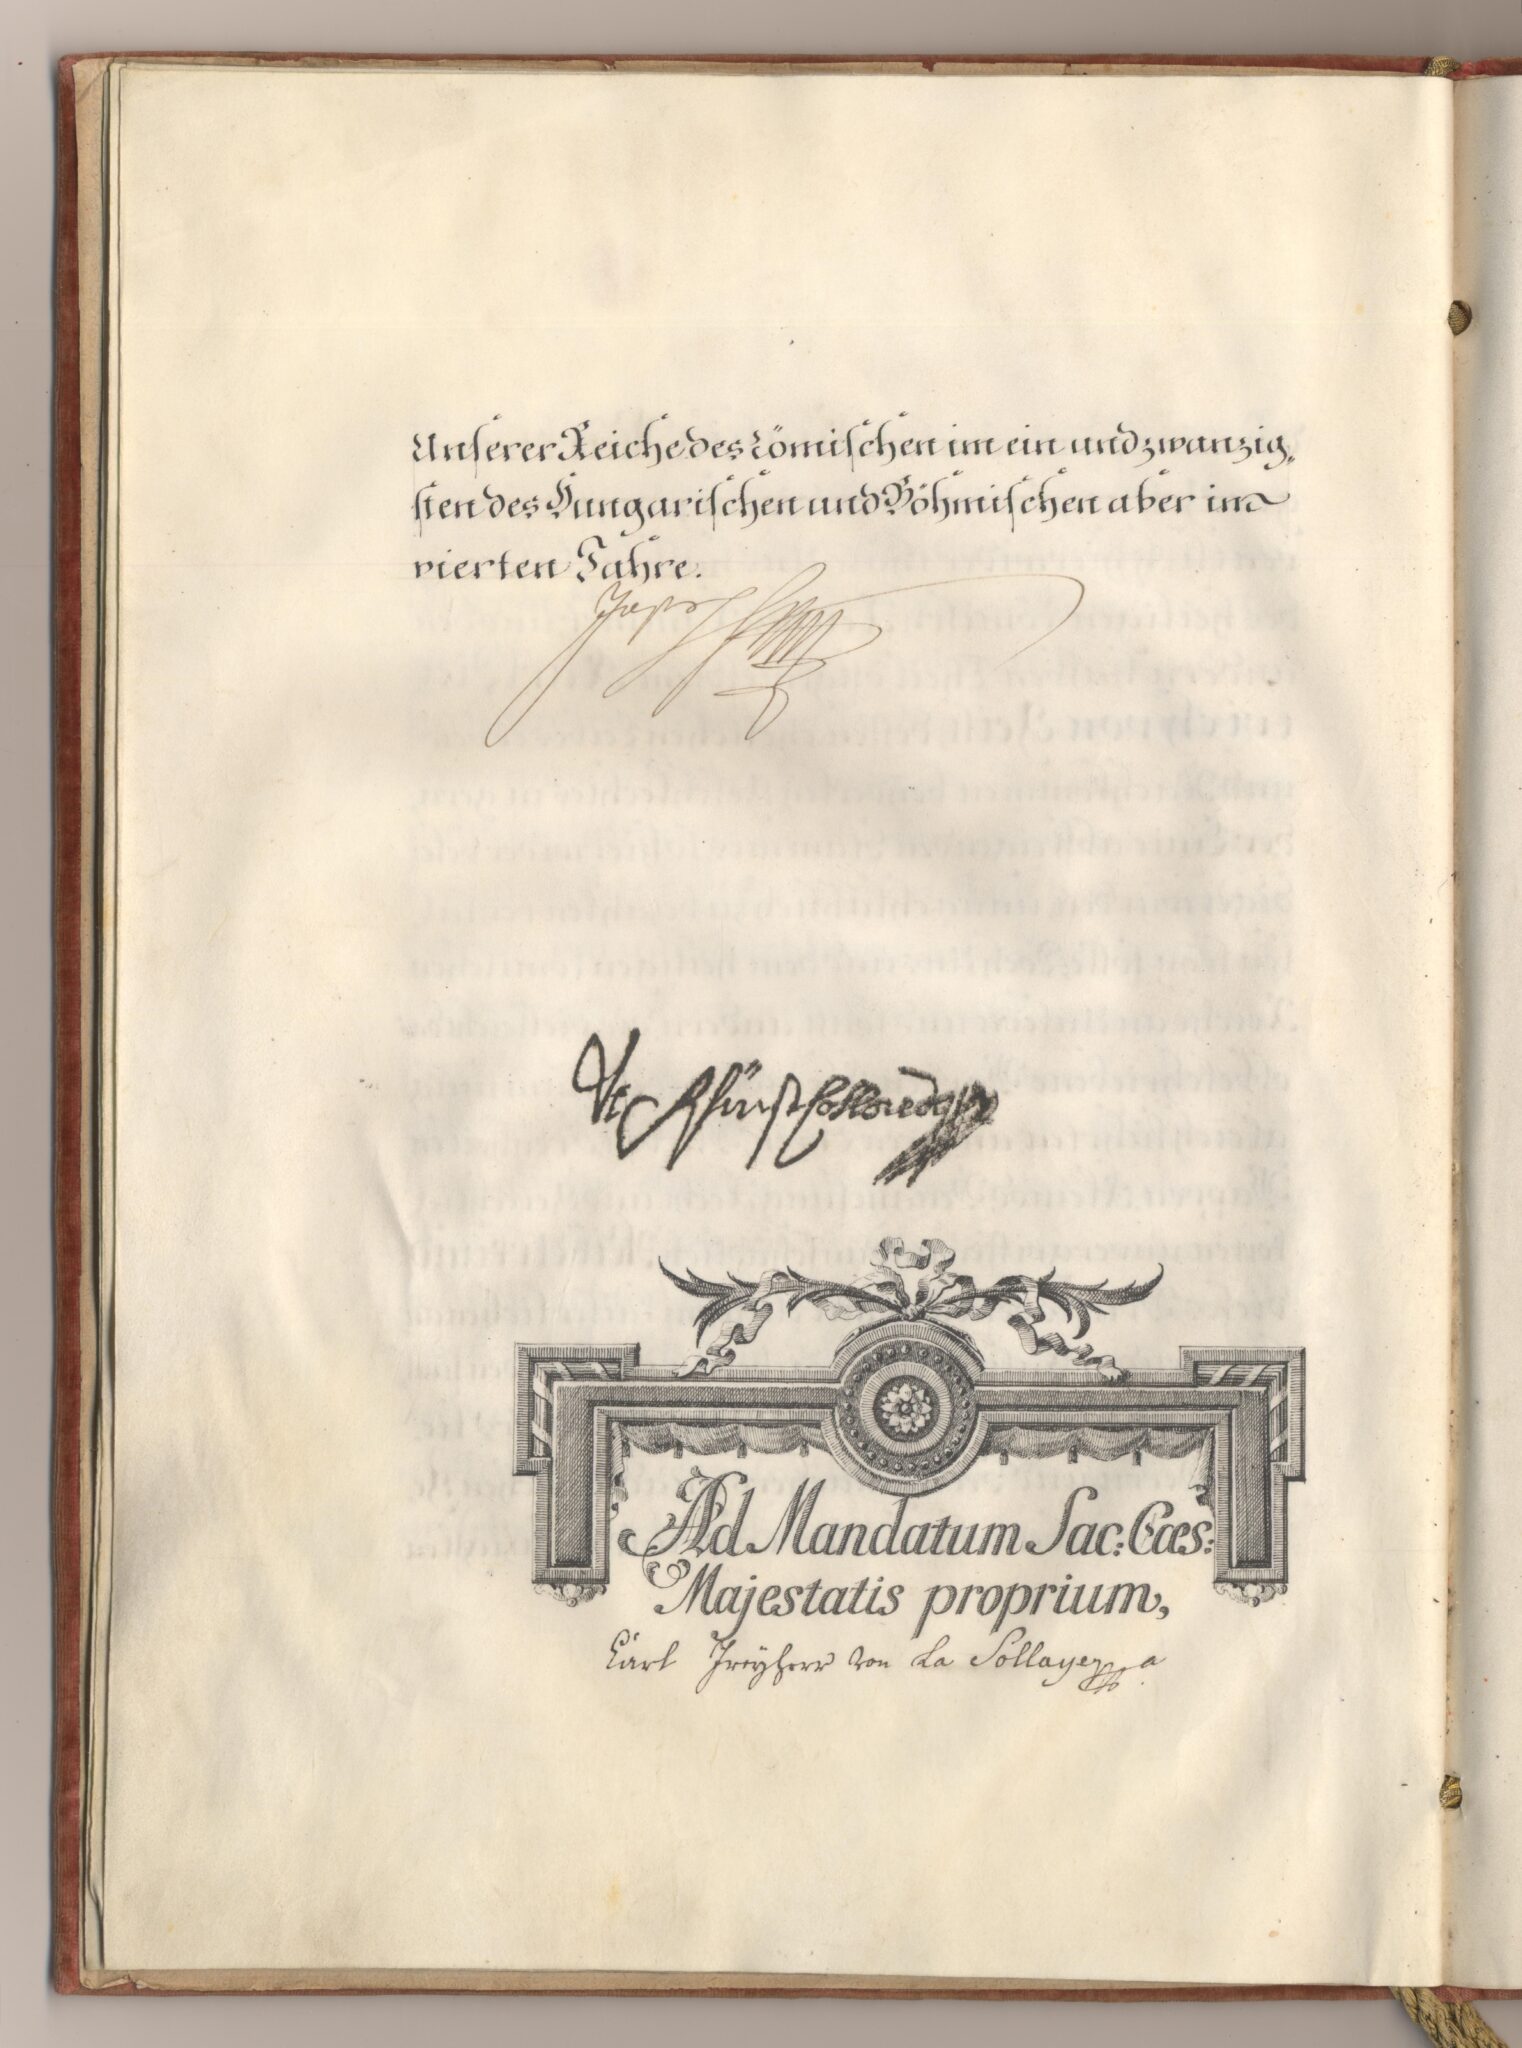 Unserer Reiche des Römischen im ein und zwanzig,
sten des Hungarischen und Böhmischen aber im
vierten Jahre.
Joseph
Vt Fürst Colloredo
Ad Mandatum Sac: Cæs:
Majestatis proprium,
Carl Freÿherr von La Sollaye